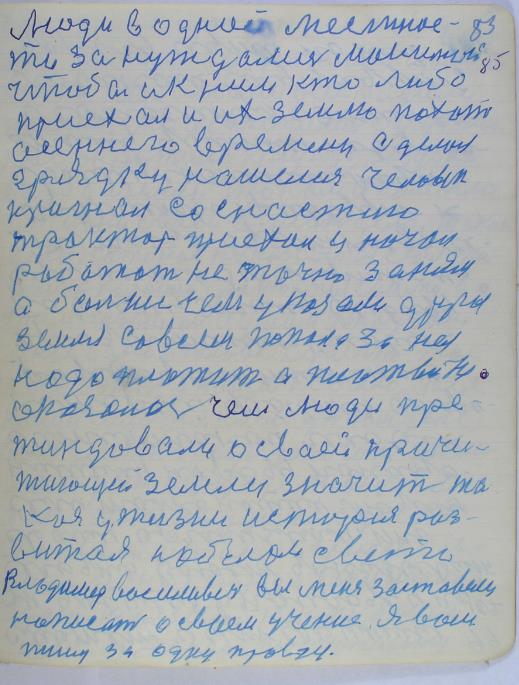 Люди в одной местнос- 83
ти за нуждалися машиной 85
чтобы ик ним кто либо
приехал и их землю
осеннего времени сделал
нашелся человек
со снастию
трактор приехал и начал
работат не точно занял
а более чем указали друга
земля совсем попала за неё
надо платит а платы не
оказалос чем люди пре-
тиндовали о своей причи-
тающей земли значит та
кая у жизни история раз-
витая по белом свети
Владимер васильевич вы меня заставели
написат о своем учение. Я вам
пишу за одну правду.